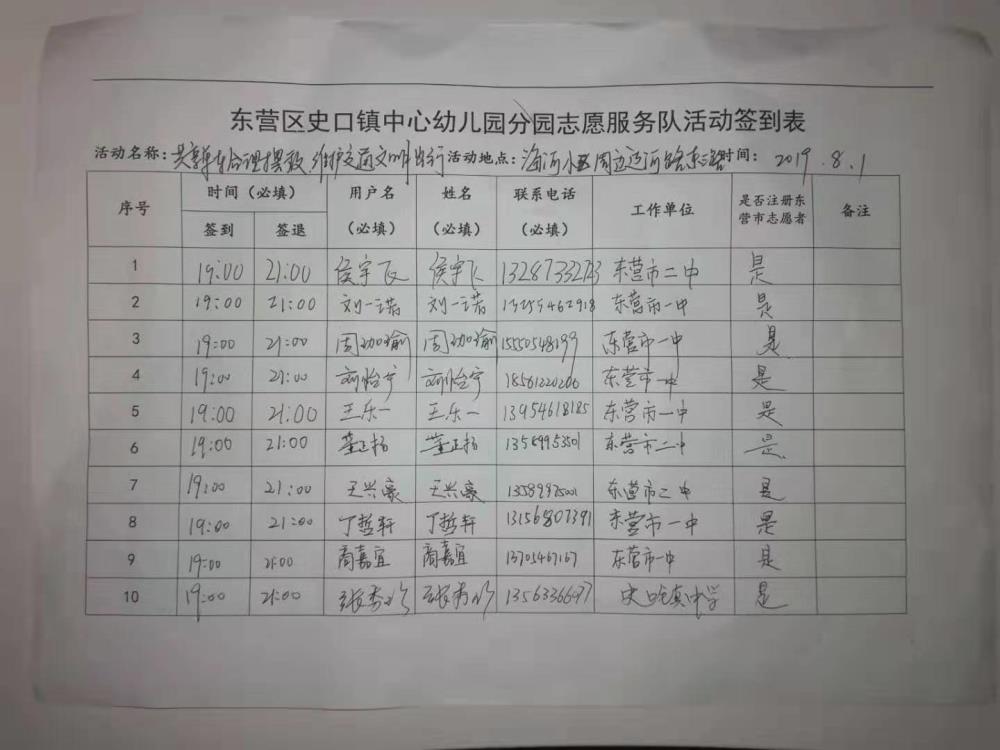 东营区史口镇中心幼儿园分园志愿服务队活动签到表
活动名称：共享单车合理摆放，维护交通文明出行 活动地点：海河小区周边辽河路东二路 时间：2019.8.1
序号 时间（必填） 用户名（必填） 姓名（必填） 联系电话（必填） 工作单位 是否注册东营市志愿者 备注
签到 签退
1 19:00 21:00 侯宇飞 侯宇飞 东营市二中 是
2 19:00 21:00 刘一诺 刘一诺 13255462918 东营市一中 是
3 19:00 21:00 周珈瑜 周珈瑜 15550548199 东营市一中 是
4 19:00 21:00 刘怡宁 刘怡宁 18561220206 东营市一中 是
5 19:00 21:00 王乐一 王乐一 13954618185 东营市一中 是
6 19:00 21:00 董正扬 董正扬 13569953501 东营市二中 是
7 19:00 21:00 王兴豪 王兴豪 13589975001 东营市二中 是
8 19:00 21:00 丁哲轩 丁哲轩 13156807391 东营市一中 是
9 19:00 21:00 商嘉宜 商嘉宜 13705467167 东营市一中 是
10 19:00 21:00 张秀珍 张秀珍 13563366977 史口镇中学 是